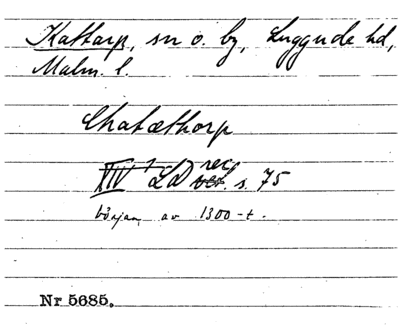 Kattarp, sn o. by, Luggude hd,
Malm. l.
Chatæthorp
XIV 1 LD rec. s. 75
början av 1300-t.
Nr 5685.